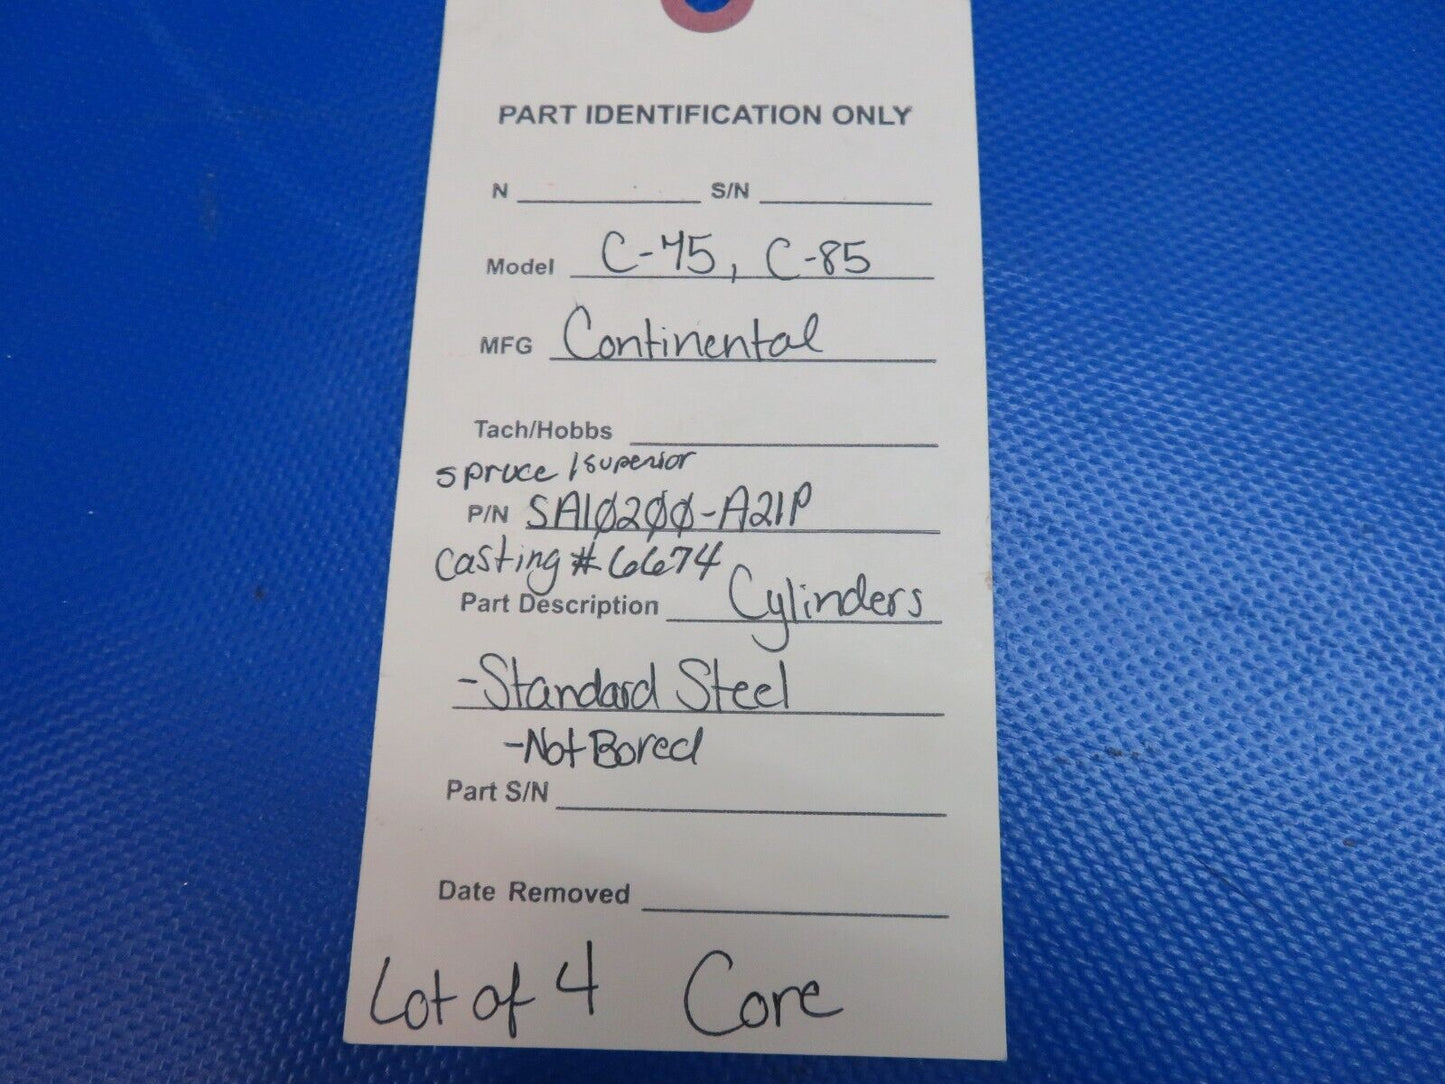 PART IDENTIFICATION ONLY
N ________ S/N ________
Model C-75, C-85
MFG Continental
Tach/Hobbs ________
spruce / superior
P/N SA10200-A21P
casting #6674
Part Description Cylinders
-Standard Steel
-Not Bored
Part S/N ________
Date Removed ________
Lot of 4 Core